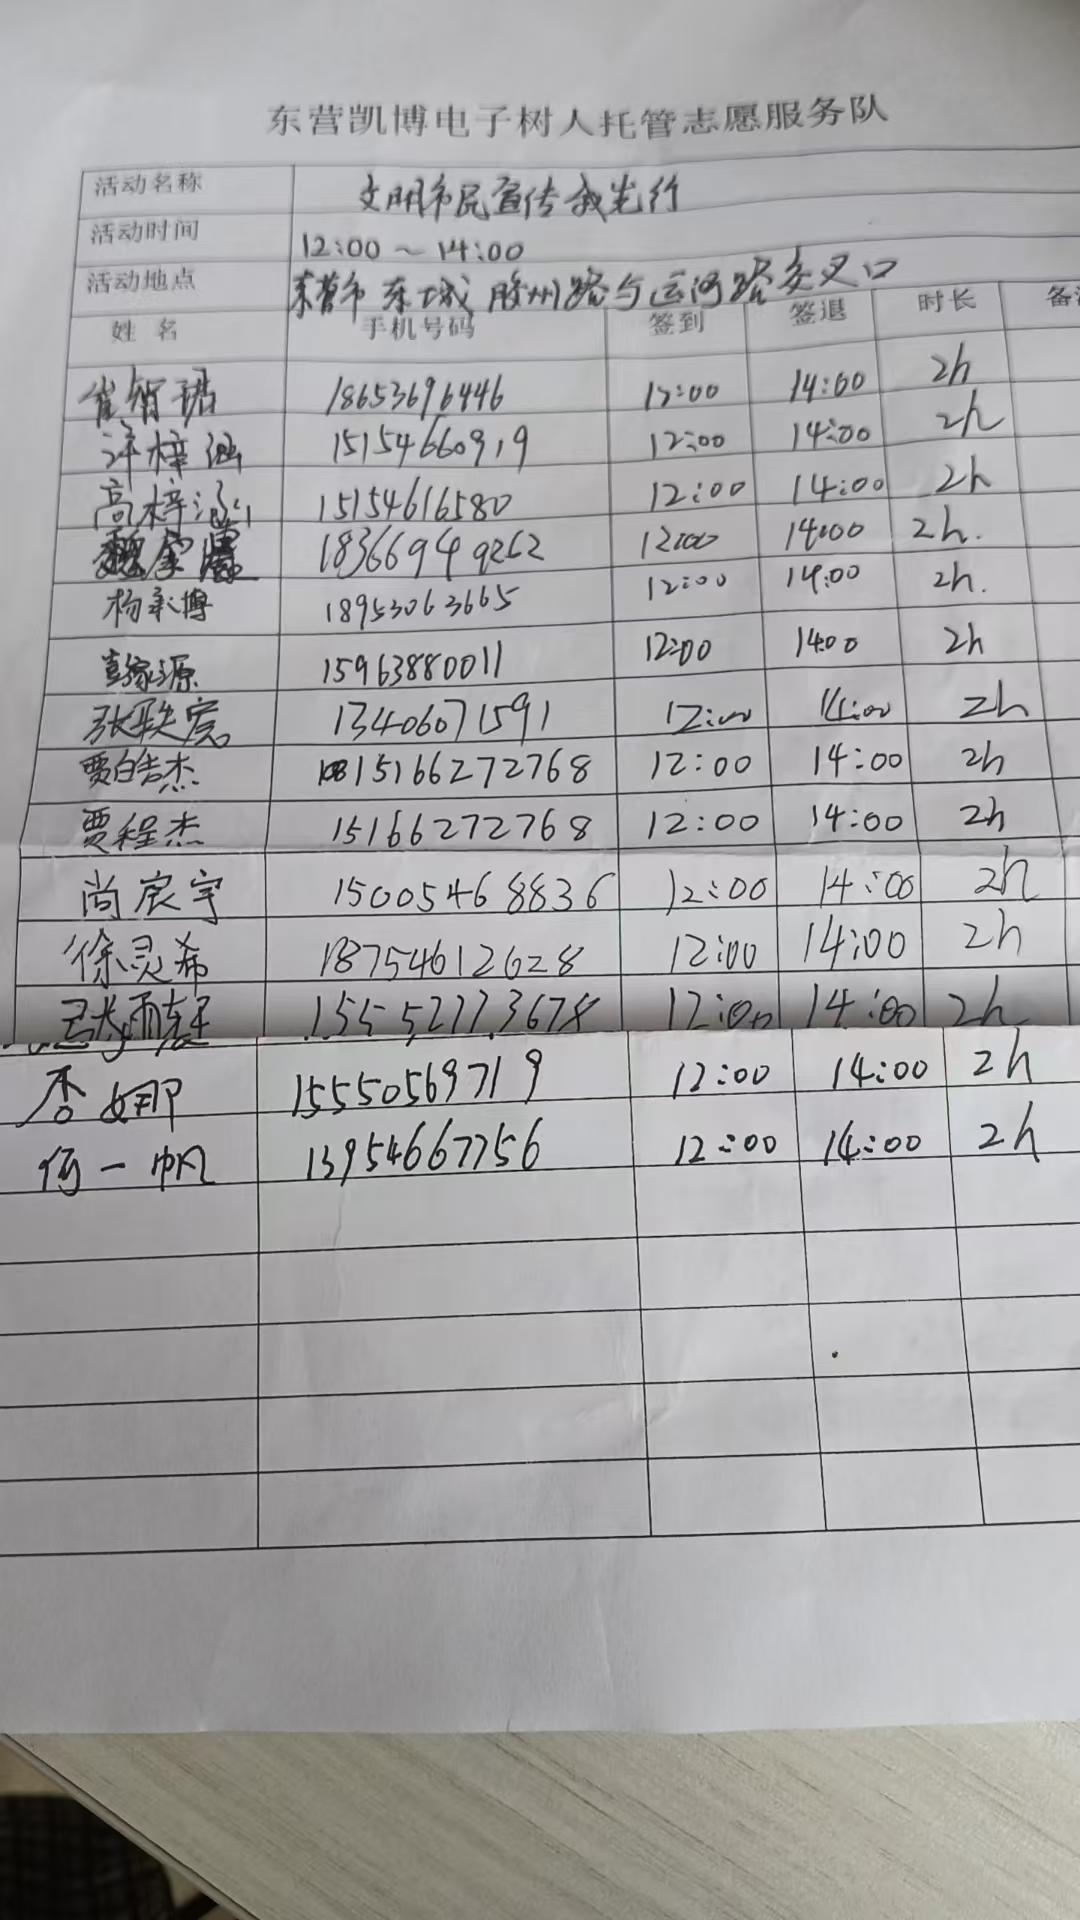 东营凯博电子树人托管志愿服务队
活动名称 文明市民宣传我先行
活动时间 12:00～14:00
活动地点 东营市东城胶州路与运河路交叉口
姓名 手机号码 签到 签退 时长 备
崔智珺 18653696446 12:00 14:00 2h
许梓涵 15154660919 12:00 14:00 2h
高梓涵 15154616580 12:00 14:00 2h
魏家 18366949262 12:00 14:00 2h.
杨承博 18953063665 12:00 14:00 2h.
彭家源 15963880011 12:00 14:00 2h
张轶宸 13406071591 12:00 14:00 2h
贾皓杰 15166272768 12:00 14:00 2h
贾程杰 15166272768 12:00 14:00 2h
尚宸宇 15005468836 12:00 14:00 2h
徐灵希 18754612628 12:00 14:00 2h
12:00 14:00 2h
杏娜 15550569719 12:00 14:00 2h
何一帆 13954667756 12:00 14:00 2h